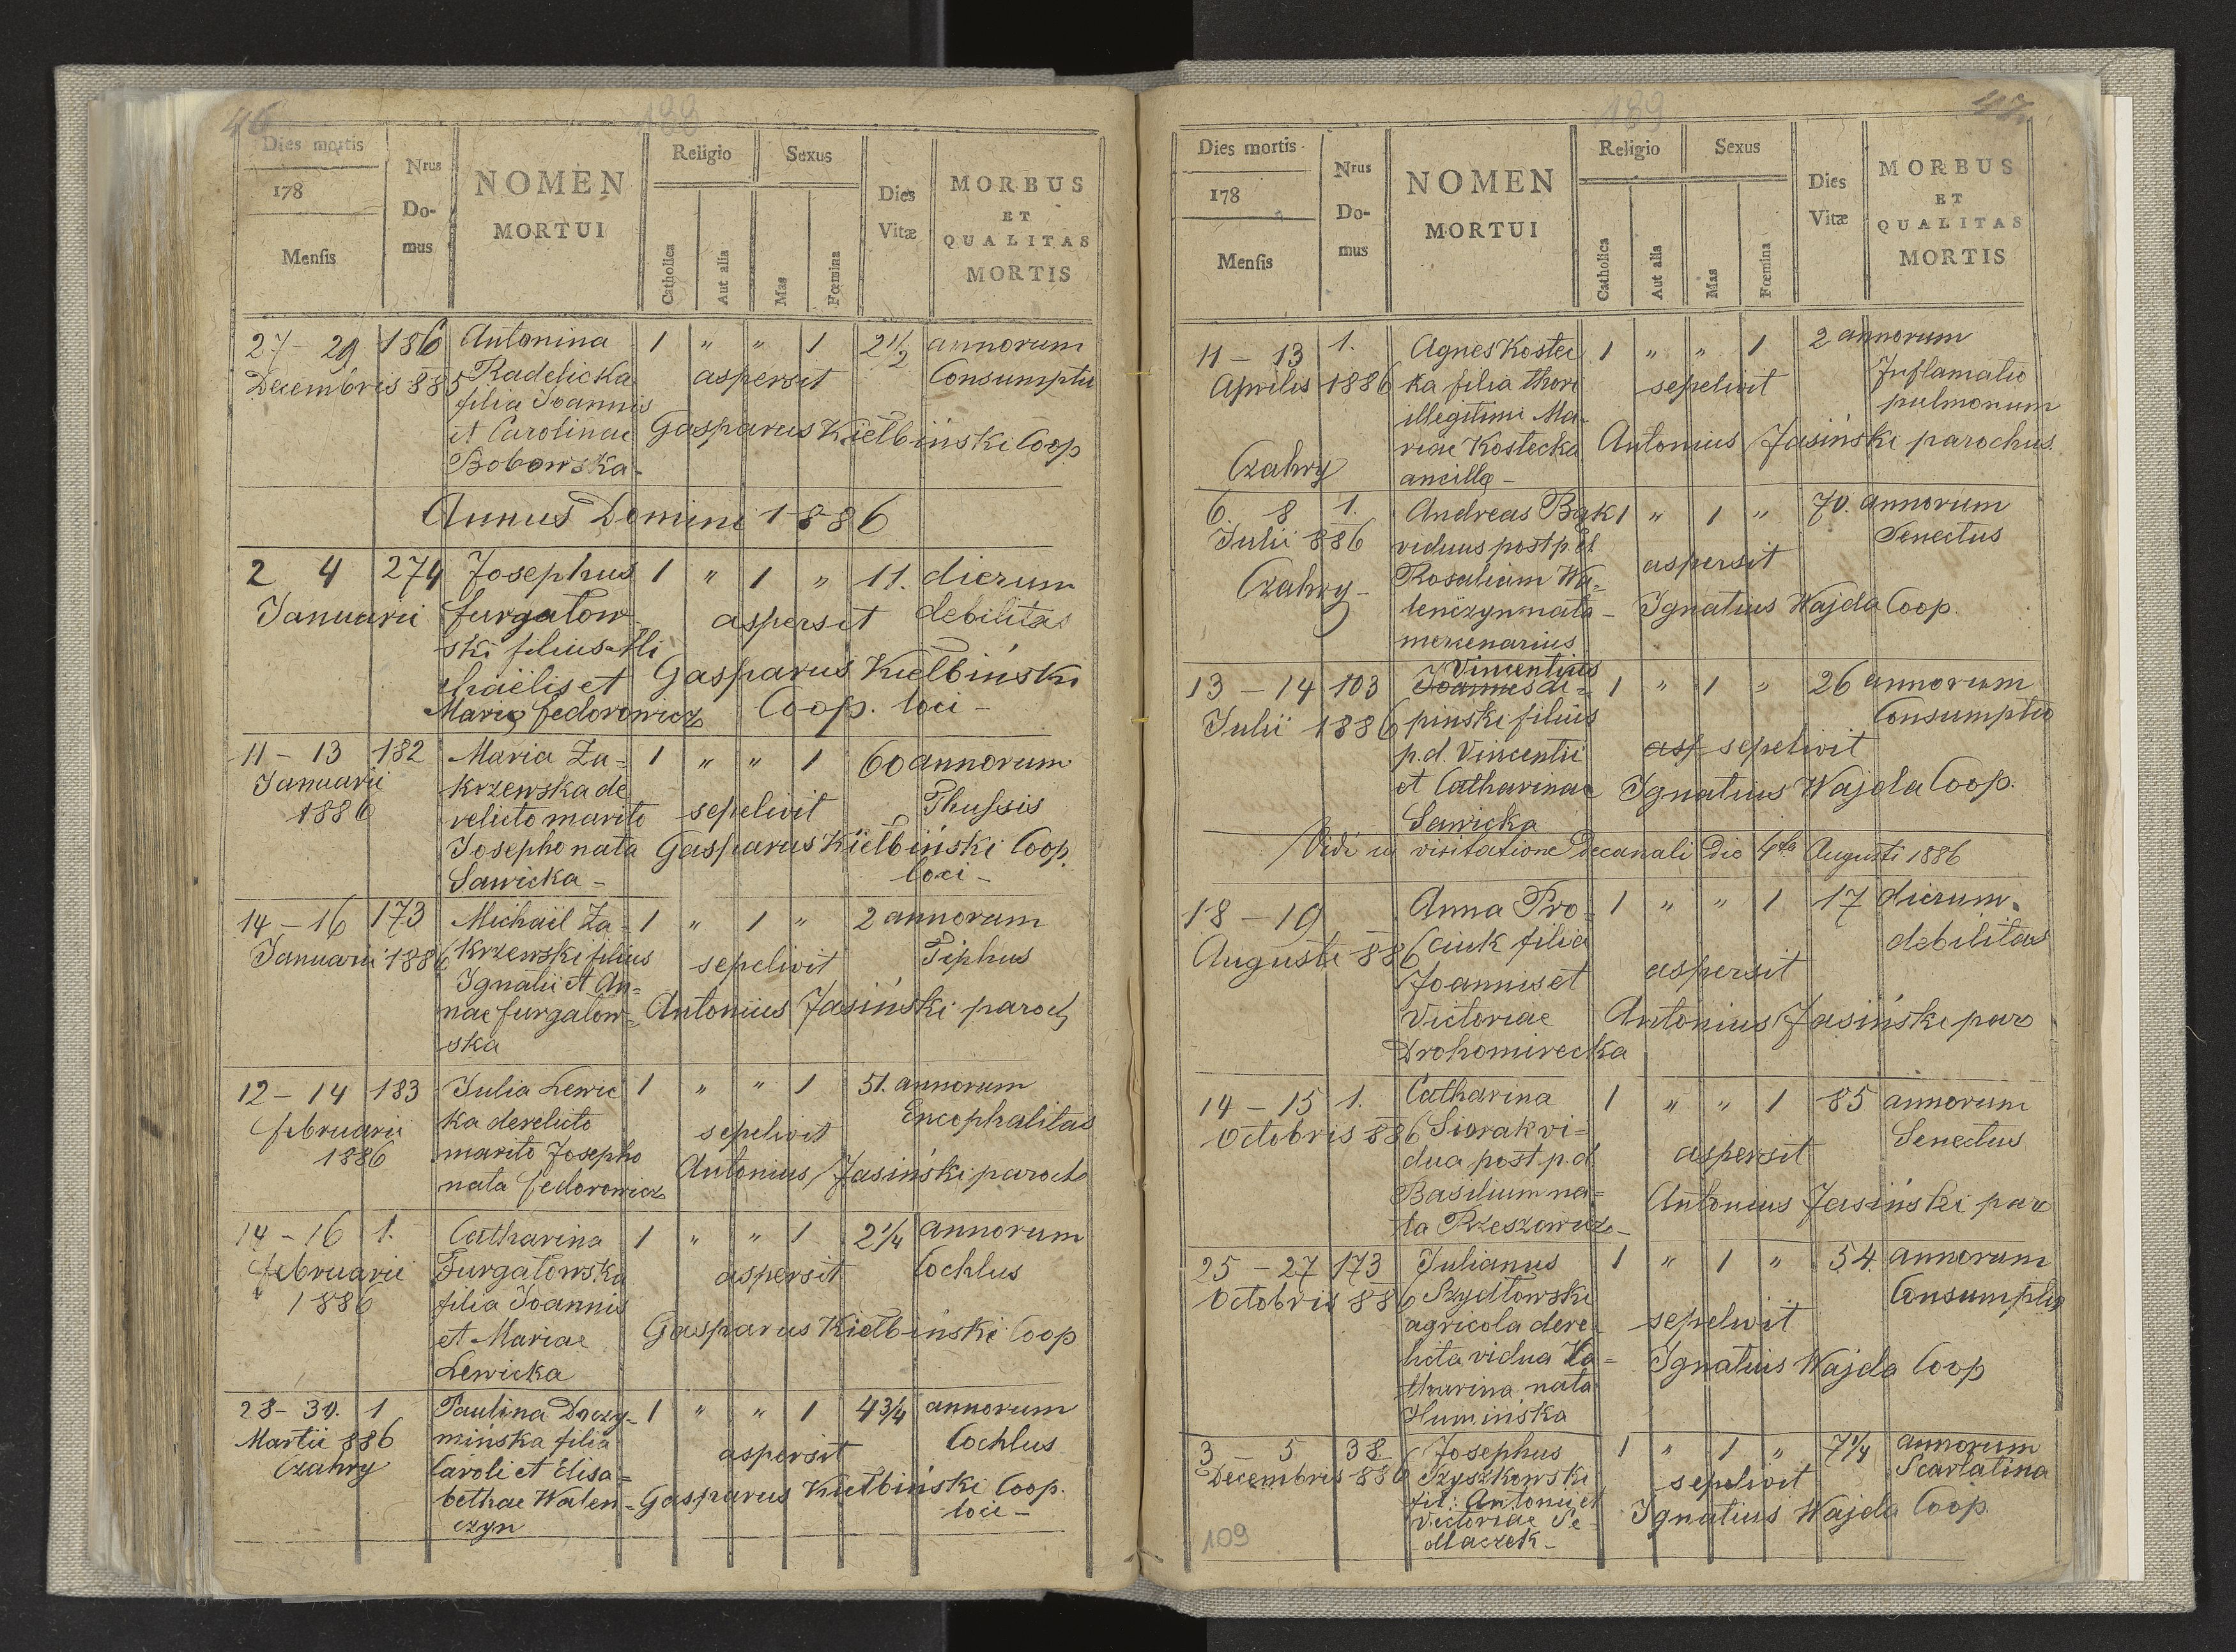 46
188
Dies mortis
178
Mensis
Nrus
Do-
mus
NOMEN
MORTUI
Religio
Catholica
Aut alia
Sexus
Mas
Fœmina
Dies
Vitæ
MORBUS
ET
QUALITAS
MORTIS
27 - 29 186 Antonina 1 " " 1 2 1/2 annorum
Decembris 885 Radelicka aspersit Consumptio
filia Joannis
et Carolinae Gasparus Kiełbiński Coop
Bobowska -
Annus Domini 1886
2 4 274 Josephus 1 " 1 " 11. dierum
Januarii furgatow aspersit debilitas
ski filius Mi
chaëlis et Gasparus Kiełbiński
Mariae fedorowicz Coop. loci -
11 - 13 182 Maria Za- 1 " " 1 60 annorum
Januarii krzewska de
1886 relicto marito sepelivit Thussis
Josepho nata Gasparus Kiełbiński Coop.
Sawicka - loci -
14 - 16 173 Michaël Za- 1 " 1 " 2 annorum
Januarii 1886 krzewski filius sepelivit Tiphus
Ignatii et An=
nae furgatow= Antonius Jasiński paroch
ska
12 - 14 183 Julia Lewic 1 " " 1 51. annorum
februarii ka derelicto sepelivit Encophalitas
1886 marito Josepho
nata fedorowicz Antonius Jasiński paroch
14 - 16 1. Catharina 1 " " 1 2 1/4 annorum
februarii Furgatowska aspersit Cochlus
1886 filia Joannis
et Mariae Gasparus Kiełbiński Coop
Lewicka
28 - 30. 1 Paulina Doczy- 1 " " 1 4 3/4 annorum
Martii 886 minska filia aspersit Cochlus
Czahry Caroli et Elisa=
bethae Walen= Gasparus Kiełbiński Coop.
czyn loci -
189
47
Dies mortis
178
Mensis
Nrus
Do-
mus
NOMEN
MORTUI
Religio
Catholica
Aut alia
Sexus
Mas
Fœmina
Dies
Vitæ
MORBUS
ET
QUALITAS
MORTIS
11 - 13 1. Agnes Kostec 1 " " 1 2 annorum
Aprilis 1886 ka filia thori sepelivit Inflamatio
illegitimi Ma- pulmonum
riae Kostecka Antonius Jasiński parochus.
Czahry ancilla -
6. 8 1. Andreas Bąk 1 " 1 " 70. annorum
Julii 886 viduus post p.d. aspersit Senectus
Czahry - Rosaliam Wa=
lenczyn nata - Ignatius Wajda Coop.
mercenarius
Vincentius
13 - 14 103 Joannes Li= 1 " 1 " 26 annorum
Julii 1886 pinski filius Consumptio
p.d. Vincentii asp sepelivit
et Catharinae Ignatius Wajda Coop.
Sawicka
Vidi in visitatione Decanali Die 4ta Augusti 1886
18 - 19 Anna Pro= 1 " " 1 17 dierum.
Augusti 886 ciuk filia debilitas
Joannis et aspersit
Victoriae Antonius Jasiński par
Drohomirecka
14 - 15 1. Catharina 1 " " 1 85 annorum
Octobris 886 Siorak vi= Senectus
dua post p.d. aspersit
Basilium na=
ta Rzeszowicz - Antonius Jasiński par
25 - 27 173 Julianus 1 " 1 " 54. annorum
Octobris 886 Szydłowski Consumptio
agricola dere- sepelivit
licta vidua Ka=
tharina nata Ignatius Wajda Coop
Huminska
3 - 5 38 Josephus 1 " 1 " 7 1/4 annorum
Decembris 886 Szyszkowski sepelivit Scarlatina
fil: Antonii et
Victoriae Se Ignatius Wajda Coop.
dlaczek -
109